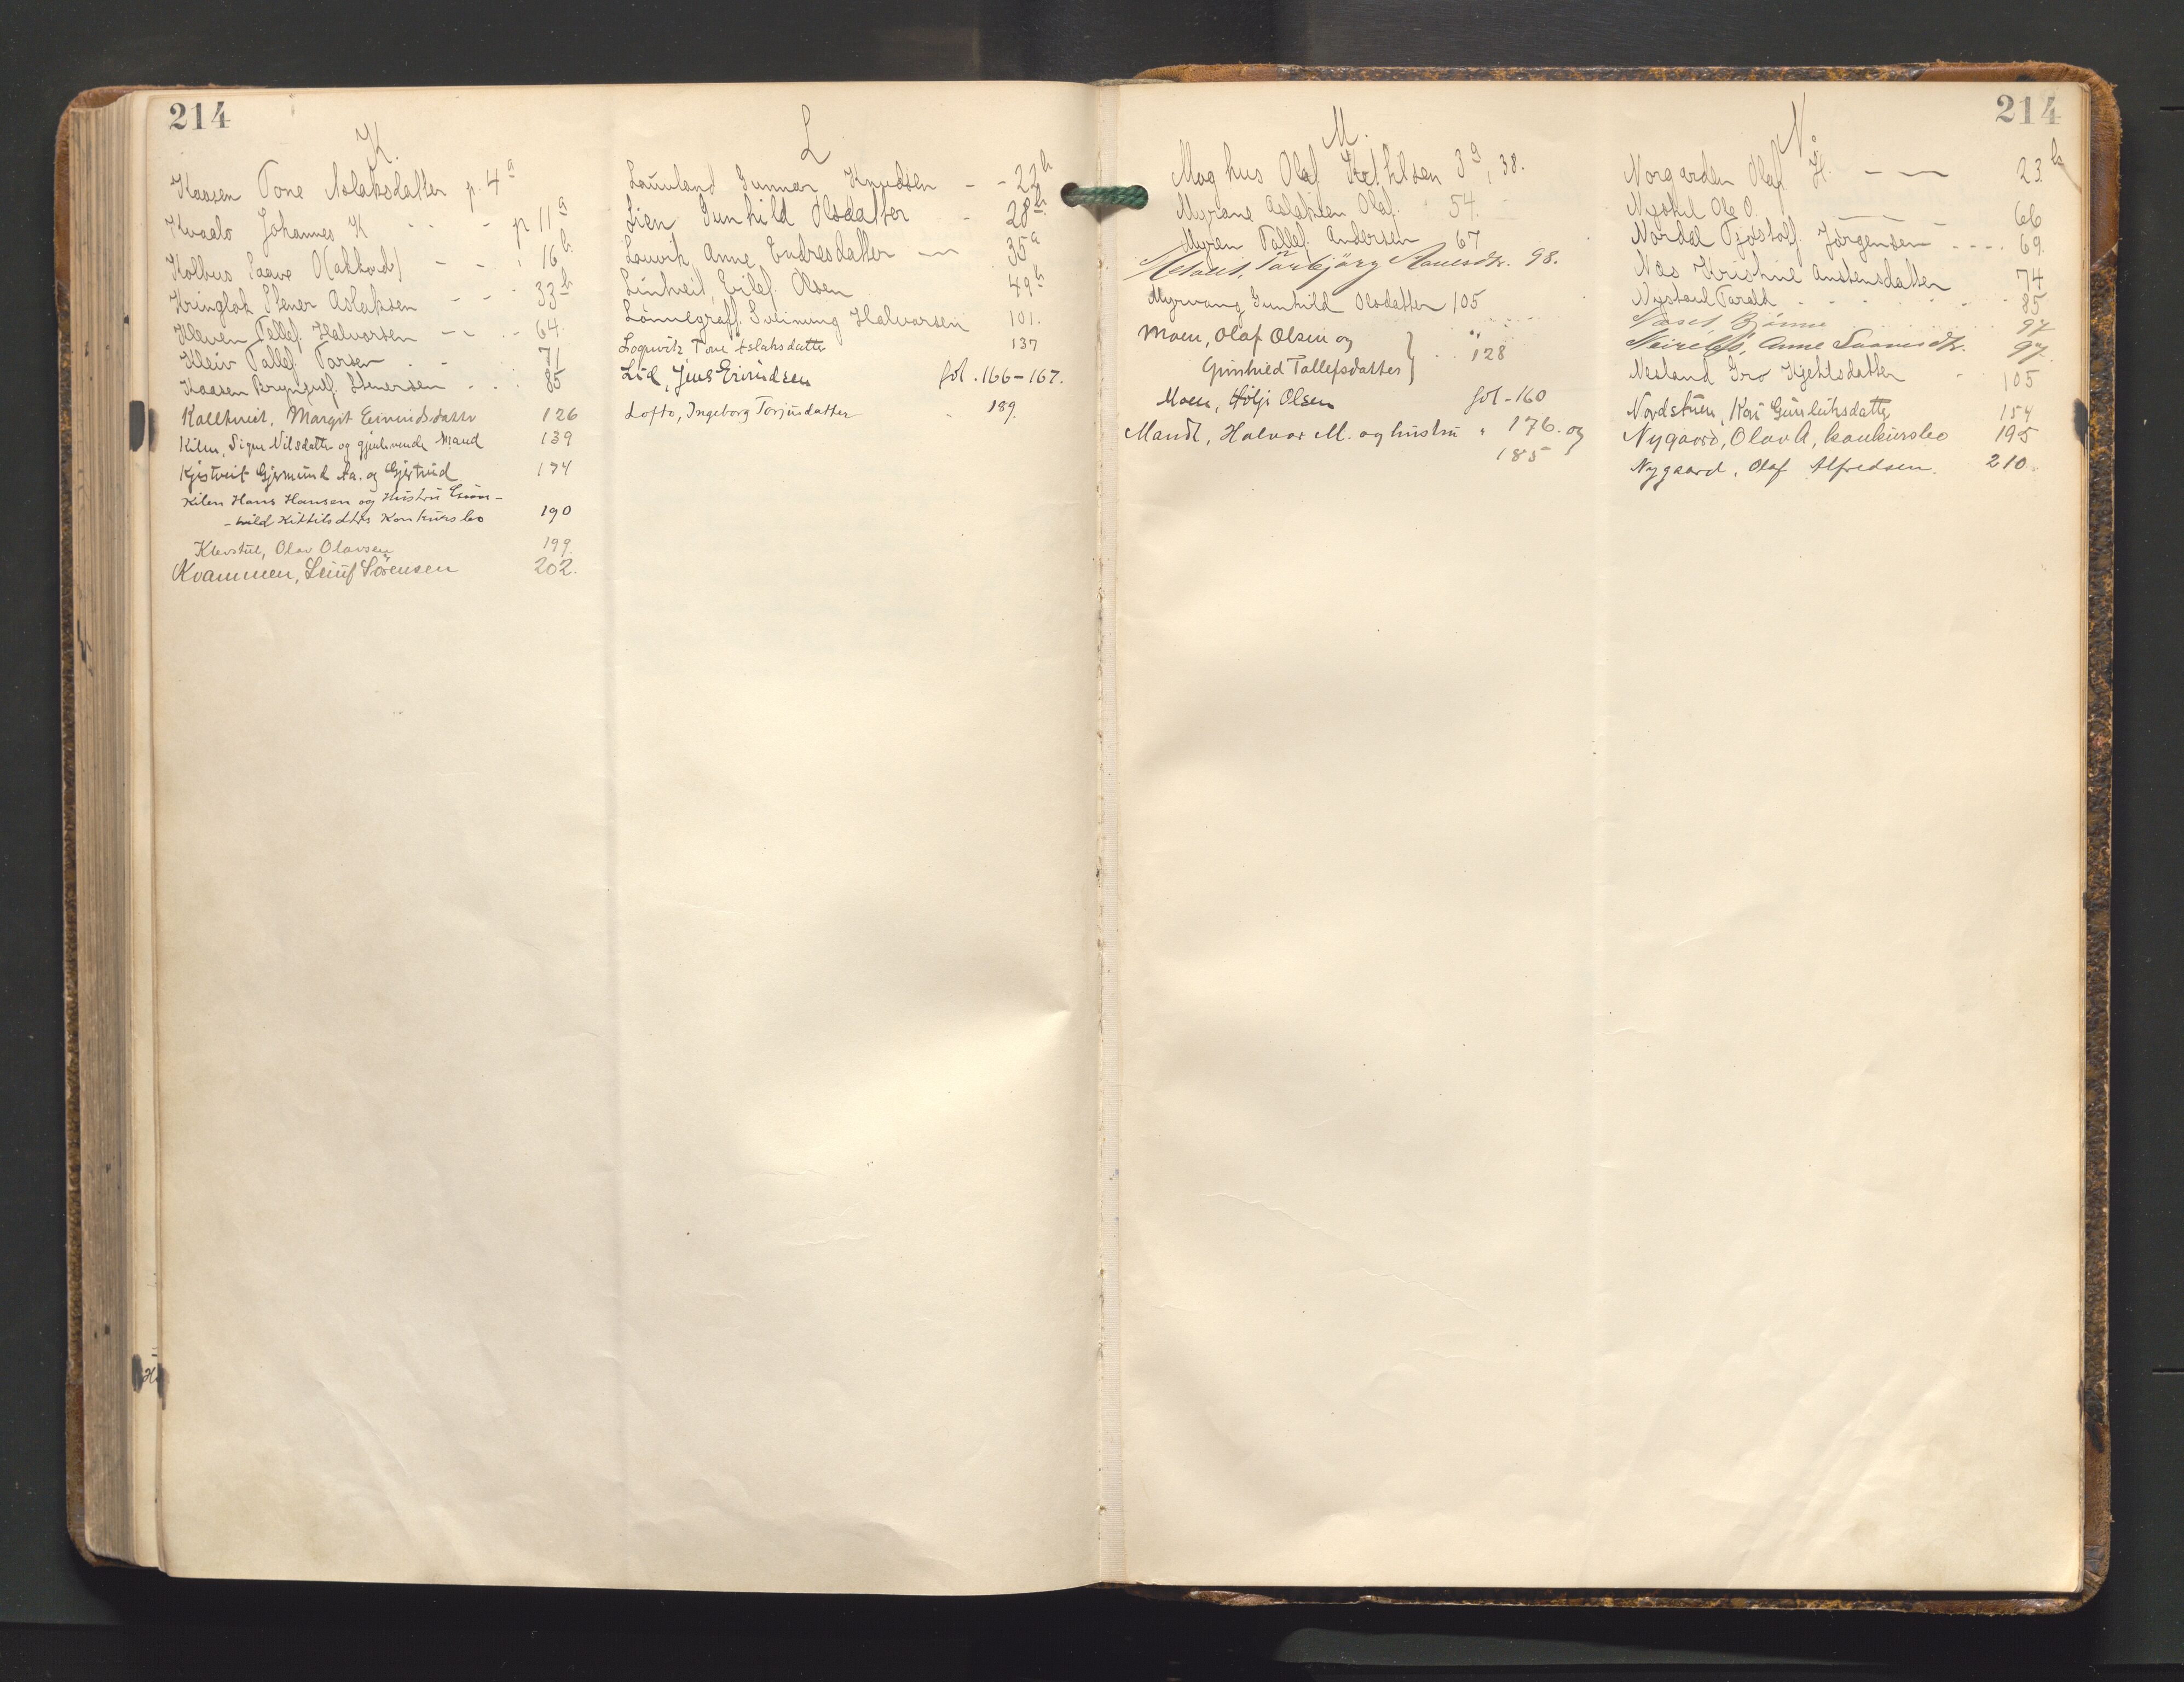 214
K.
Kaasen Tone Aslaksdatter p. 4a
Kvaalo Johannes K - - - p 11a
Kolbus Saave O(akkord) - - 16b
Kringlak Stener Aslaksen - - 33b
Kleven Tellef Halvorsen - - - 64.
Kleiv Tallef Tarsen - - 71
Kaasen Bryngulf Stenersen - . . 85
Kaltkveit, Margit Eivindsdatter 126
Kilen, Signe Nilsdatter og gjenlevende Mand 139
Kjistveit Gjermund Aa. og Gjertrud 174
Kilen Hans Hansen og Hustru Gun-
-hild Kittilsdtrs Konkursbo 190
Klevstul, Olav Olavsen 199.
Kvammen, Leiuf Sørensen 202.
L
Lauvland Gunnar Knudsen - - 22b
Lien Gunhild Olsdatter - 28b
Lauvik Anne Endresdatter - 35a
Linkveit, Eilef Olsen 49b
Lönnegraff. Sveinung Halvorsen 101.
Loguvik Tone Aslaksdatter 137
Lid, Jens Eivindsen fol. 166-167.
Lofto, Ingeborg Torjusdatter - 189.
214
M.
Moghus Olaf Ketilsen 3a, 38.
Myrane Aslaksen Olaf. 54.
Myren Tallef Andersen 67
Torbjörg 98.
Myrvang Gunhild Olsdatter 105
Moen, Olaf Olsen og
Gunhild Tallefsdatter } . . 128
Moen, Hölje Olsen fol - 160
Mandt, Halvor M. og hustru " 176. og
185
N.
Norgarden Olaf H. - - 23b
Nystul Ole O. - 66
Nordal Tjostolf Jörgensen - - - . 69.
Næs Kristine Anstensdatter 74
Nystaul Tarald - - - - 85
Næset, Bjönne 97
Anne 97.
Nesland Gro Kjetilsdatter - 105
Nordstuen, Kari Gunleiksdatter 154
Nygaard, Olav A, konkursbo 195
Nygaard, Olaf Alfredsen. 210.